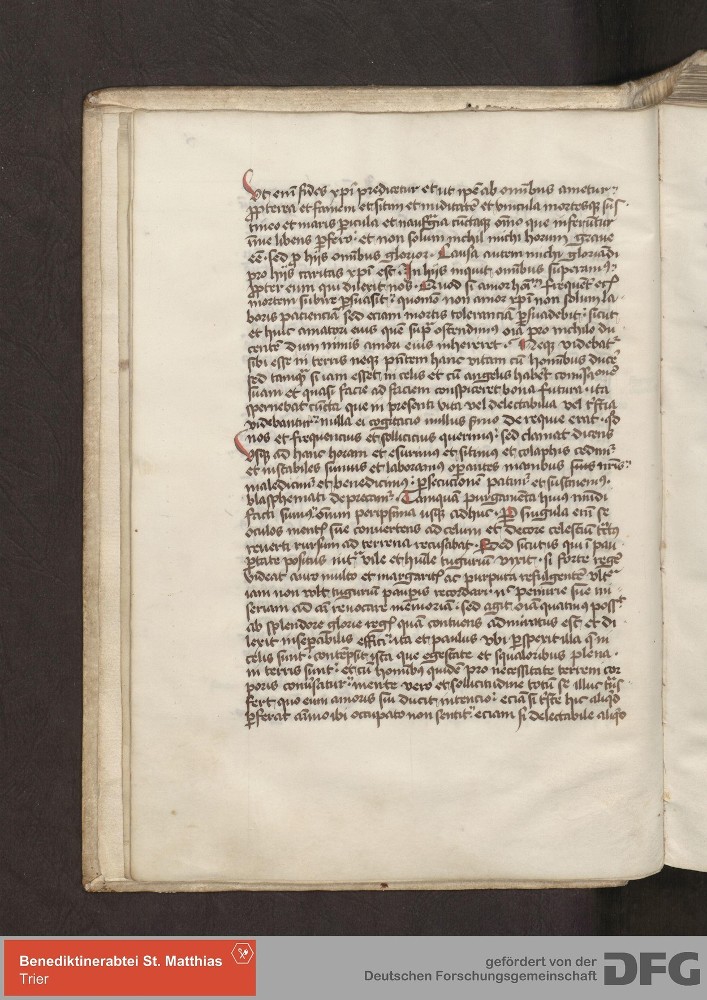 Vt enī fides xp̄i predicetur et ut ip̄e ab omnibus ametur
ꝓpterea et famem et sitim et nuditatē et vincula mortesqꝫ
timeo et maris ꝑicula et naufragia cunctaqꝫ omīo que inferuntur
libens ꝑfero · et non solum nichil michi horum graue
eē · sed ꝑ hijs omnibus glorior · Causa autem michi gloriādi
pro hijs caritas xp̄i est · In hijs inquit omnibus superamꝰ
ꝓpter eum qui dilexit nos · Quod si amor frequēt̄
mortem subire ꝑsuasit · quomō non amor xp̄i non solum la
boris pacienciā sed eciam mortis toleranciā ꝑsuadebit · sicut
et huic amatori eius quē supͣ ostendimꝰ oīa pro nichilo du
centē dum nimis amori eius inhereret · Neqꝫ videbat̄
sibi esse in terris neqꝫ pn̄tem hanc vitam cū hominibus ducē
sed tamqͣ si iam esset in celis et cū angelis habēt
suam et quasi facie ad faciem conspiceret bona futura · ita
spernebat cuncta que in presenti vita vel delectabilia vel tristia
videbantur nulla ei cogitacio nullus sermo de requie erat · qd
nos et frequencius et sollicicius querimꝰ · sed clamat dicens
Vsqꝫ ad hanc horam et esurimꝰ et sitimꝰ et colaphis cedimꝰ
et instabiles sumus et laboramꝰ operantes manibus nrīs
maledicimꝰ et benedicimꝰ · ꝑsecucionē patimꝰ et sustinemꝰ
blasphemati deprecamꝰ · Tamquā purgamēta huiꝰ mūdi
facti sumꝰ omniū peripsima usqꝫ adhuc · Per singula enī se
oculos mentis sue conuertens ad celum et decore celestiū
reuerti rursum ad terrena recusabat · Sed sicut is qui ī pau
ꝑtate positus vile et humile tugurium viuit · si forte regē
videat auro multo et margaritis ac purpura refulgentē vltͣ
iam non volt tuguriū pauꝑis recordari · penurie sue mi
seriam ad eā reuocare memoriā · sed agit oīa quatinꝰ possit
ab splendore glorie regis quā contuens admiratus est et di
lexit inseꝑabilis effici · ita et paulus vbi ꝑspexit illa que in
celis sunt · contempsit ista que egestate et squaloribus plena
in terris sunt · et cū hominibꝰ quidē pro necessitate terrem cor
poris conuersatur · mente vero et sollicitudine totū se illuc
fert quo eum amoris sui ducit intencio · eciā si triste hic aliquid
ꝑferat animo ibi occupato non sentit · eciam si delectabile aliquid
Benediktinerabtei St. Matthias
Trier
gefördert von der
Deutschen Forschungsgemeinschaft
DFG